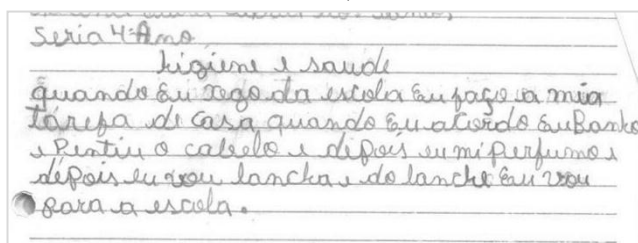 Seria 4º Ano
higiene e saude
quando Eu xego da escola Eu faço a mia
tárefa de casa quando Eu acordo Eu Banho
e Pentiu o cabelo e dipois eu mi perfumo e
depois eu vou lancha e do lanche Eu vou
para a escola.